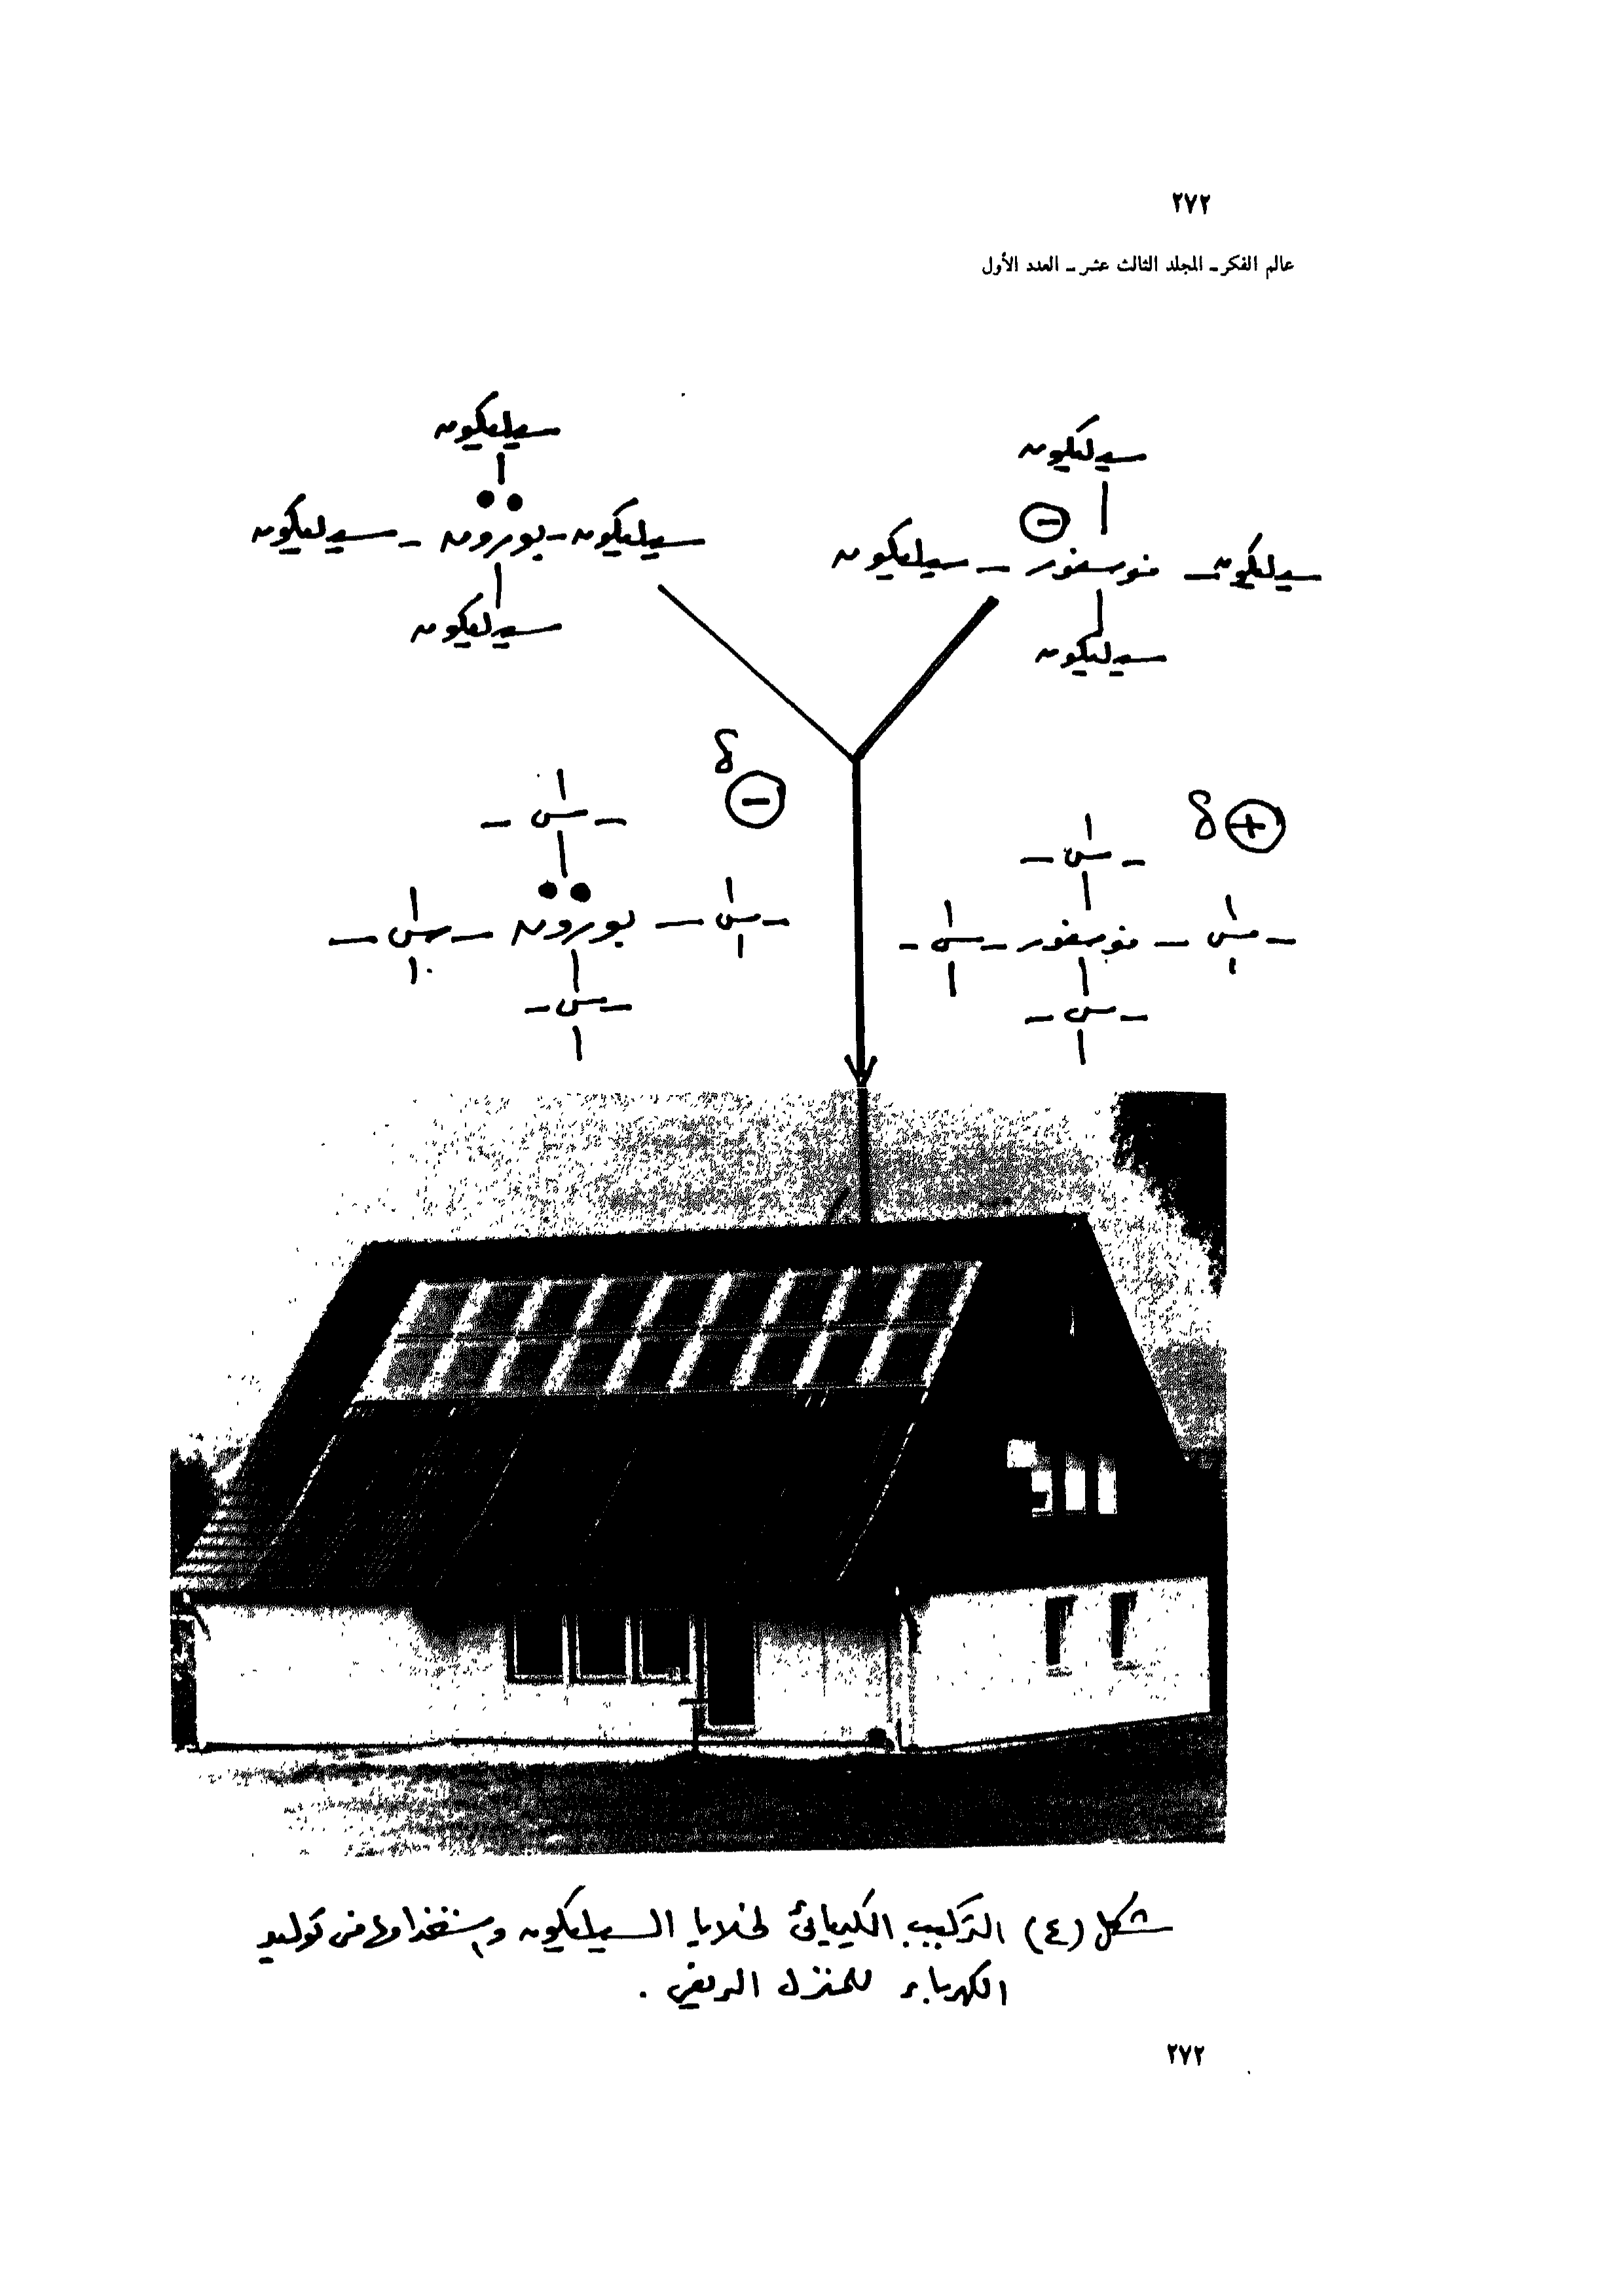 ٢٧٢
عالم الفكر - المجلد الثالث عشر - العدد الأول
سيليكون
سيليكون - بورون - سيليكون
سيليكون
سيليكون
⊖
سيليكون - فوسفور - سيليكون
سيليكون
δ ⊖
- س -
- س - بورون - س -
- س -
δ ⊕
- س -
- س - فوسفور - س -
- س -
شكل (٤) التركيب الكيميائي لخلايا السيليكون واستخدامها في توليد
الكهرباء للمنزل الريفي .
٢٧٢